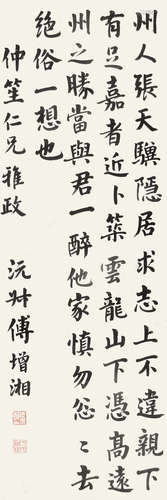 州人張天驥隱居求志上不違親下
有足嘉者近卜築雲龍山下憑高遠
州之勝當與君一醉他家慎勿忩〻去
絕俗一想也
仲笙仁兄雅政
沅叔傅增湘